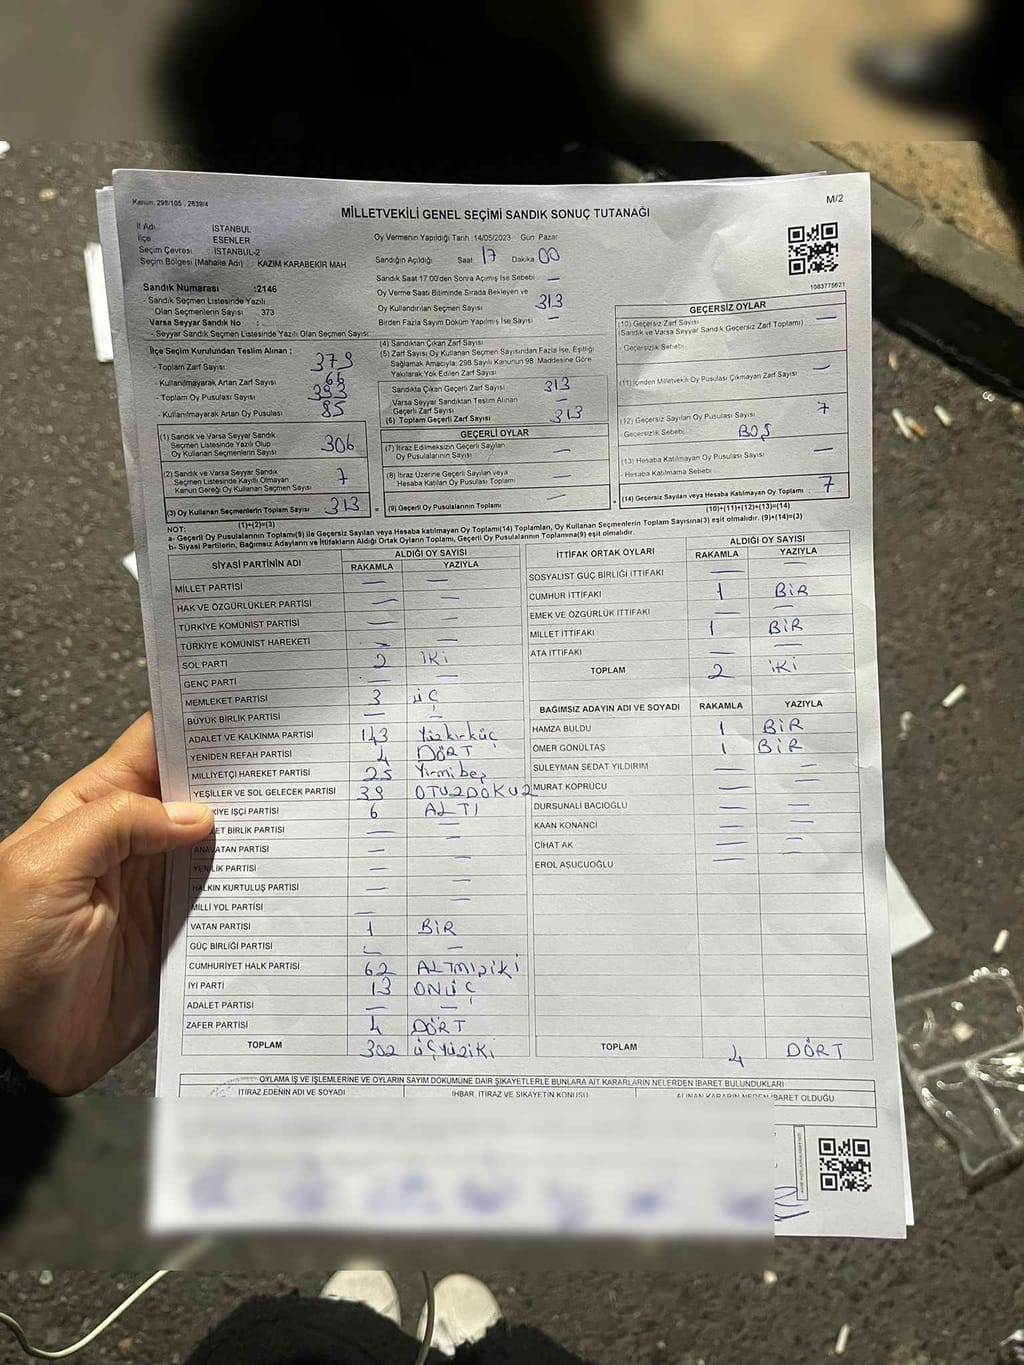 Kanun: 298/105 , 2839/4
M/2
MİLLETVEKİLİ GENEL SEÇİMİ SANDIK SONUÇ TUTANAĞI
İl Adı İSTANBUL
İlçe ESENLER
Seçim Çevresi İSTANBUL-2
Seçim Bölgesi (Mahalle Adı) : KAZIM KARABEKİR MAH
Sandık Numarası :2146
- Sandık Seçmen Listesinde Yazılı
Olan Seçmenlerin Sayısı 373
Varsa Seyyar Sandık No :
- Seyyar Sandık Seçmen Listesinde Yazılı Olan Seçmen Sayısı:
İlçe Seçim Kurulundan Teslim Alınan ;
- Toplam Zarf Sayısı: 379
- Kullanılmayarak Artan Zarf Sayısı 66
- Toplam Oy Pusulası Sayısı
- Kullanılmayarak Artan Oy Pusulası 85
(1) Sandık ve Varsa Seyyar Sandık
Seçmen Listesinde Yazılı Olup
Oy Kullanan Seçmenlerin Sayısı 306
(2) Sandık ve Varsa Seyyar Sandık
Seçmen Listesinde Kayıtlı Olmayan
Kanun Gereği Oy Kullanan Seçmen Sayısı 7
(3) Oy Kullanan Seçmenlerin Toplam Sayısı 313
(1)+(2)=(3)
Oy Vermenin Yapıldığı Tarih :14/05/2023 Gün: Pazar
Sandığın Açıldığı Saat 17 Dakika 00
Sandık Saat 17:00'den Sonra Açılmış İse Sebebi —
Oy Verme Saati Bitiminde Sırada Bekleyen ve
Oy Kullandırılan Seçmen Sayısı 313
Birden Fazla Sayım Döküm Yapılmış İse Sayısı —
(4) Sandıktan Çıkan Zarf Sayısı
(5) Zarf Sayısı Oy Kullanan Seçmen Sayısından Fazla İse, Eşitliği
Sağlamak Amacıyla; 298 Sayılı Kanunun 98. Maddesine Göre
Yakılarak Yok Edilen Zarf Sayısı
Sandıkta Çıkan Geçerli Zarf Sayısı 313
Varsa Seyyar Sandıktan Teslim Alınan
Geçerli Zarf Sayısı —
(6) Toplam Geçerli Zarf Sayısı 313
GEÇERLİ OYLAR
(7) İtiraz Edilmeksizin Geçerli Sayılan
Oy Pusulalarının Sayısı —
(8) İtiraz Üzerine Geçerli Sayılan veya
Hesaba Katılan Oy Pusulası Toplamı —
(9) Geçerli Oy Pusulalarının Toplamı —
1083775621
GEÇERSİZ OYLAR
(10) Geçersiz Zarf Sayısı —
(Sandık ve Varsa Seyyar Sandık Geçersiz Zarf Toplamı)
- Geçersizlik Sebebi:
(11) İçinden Milletvekili Oy Pusulası Çıkmayan Zarf Sayısı —
(12) Geçersiz Sayılan Oy Pusulası Sayısı 7
- Geçersizlik Sebebi: BOŞ
(13) Hesaba Katılmayan Oy Pusulası Sayısı —
- Hesaba Katılmama Sebebi :
(14) Geçersiz Sayılan veya Hesaba Katılmayan Oy Toplamı : 7
(10)+(11)+(12)+(13)=(14)
NOT:
a- Geçerli Oy Pusulalarının Toplamı(9) ile Geçersiz Sayılan veya Hesaba katılmayan Oy Toplamı(14) Toplamları, Oy Kullanan Seçmenlerin Toplam Sayısına(3) eşit olmalıdır. (9)+(14)=(3)
b- Siyasi Partilerin, Bağımsız Adayların ve İttifakların Aldığı Ortak Oyların Toplamı, Geçerli Oy Pusulalarının Toplamına(9) eşit olmalıdır.
SİYASİ PARTİNİN ADI ALDIĞI OY SAYISI
RAKAMLA YAZIYLA
MİLLET PARTİSİ — —
HAK VE ÖZGÜRLÜKLER PARTİSİ — —
TÜRKİYE KOMÜNİST PARTİSİ — —
TÜRKİYE KOMÜNİST HAREKETİ — —
SOL PARTİ 2 İKİ
GENÇ PARTİ — —
MEMLEKET PARTİSİ 3 ÜÇ
BÜYÜK BİRLİK PARTİSİ — —
ADALET VE KALKINMA PARTİSİ 143 Yüzkırküç
YENİDEN REFAH PARTİSİ 4 DÖRT
MİLLİYETÇİ HAREKET PARTİSİ 25 Yirmibeş
YEŞİLLER VE SOL GELECEK PARTİSİ 39 OTUZDOKUZ
KİYE İŞÇİ PARTİSİ 6 ALTI
LET BİRLİK PARTİSİ — —
ANAVATAN PARTİSİ —
YENİLİK PARTİSİ — —
HALKIN KURTULUŞ PARTİSİ — —
MİLLİ YOL PARTİSİ — —
VATAN PARTİSİ 1 BİR
GÜÇ BİRLİĞİ PARTİSİ — —
CUMHURİYET HALK PARTİSİ 62 ALTMIŞİKİ
İYİ PARTİ 13 ONÜÇ
ADALET PARTİSİ — —
ZAFER PARTİSİ 4 DÖRT
TOPLAM 302 ÜÇYÜZİKİ
İTTİFAK ORTAK OYLARI ALDIĞI OY SAYISI
RAKAMLA YAZIYLA
SOSYALİST GÜÇ BİRLİĞİ İTTİFAKI — —
CUMHUR İTTİFAKI 1 BİR
EMEK VE ÖZGÜRLÜK İTTİFAKI — —
MİLLET İTTİFAKI 1 BİR
ATA İTTİFAKI — —
TOPLAM 2 İKİ
BAĞIMSIZ ADAYIN ADI VE SOYADI RAKAMLA YAZIYLA
HAMZA BULDU 1 BİR
ÖMER GÖNÜLTAŞ 1 BİR
SÜLEYMAN SEDAT YILDIRIM — —
MURAT KÖPRÜCÜ — —
DURSUNALİ BACIOĞLU — —
KAAN KONANCİ — —
CİHAT AK — —
EROL AŞUCUOĞLU —
TOPLAM 4 DÖRT
OYLAMA İŞ VE İŞLEMLERİNE VE OYLARIN SAYIM DÖKÜMÜNE DAİR ŞİKAYETLERLE BUNLARA AİT KARARLARIN NELERDEN İBARET BULUNDUKLARI
İTİRAZ EDENİN ADI VE SOYADI İHBAR, İTİRAZ VE ŞİKAYETİN KONUSU ALINAN KARARIN NEDEN İBARET OLDUĞU